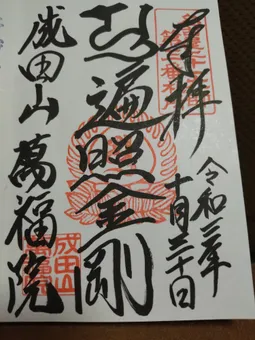 奉拝
令和二年
十月三十日
遍照金剛
成田山 萬福院
成田山
萬福院